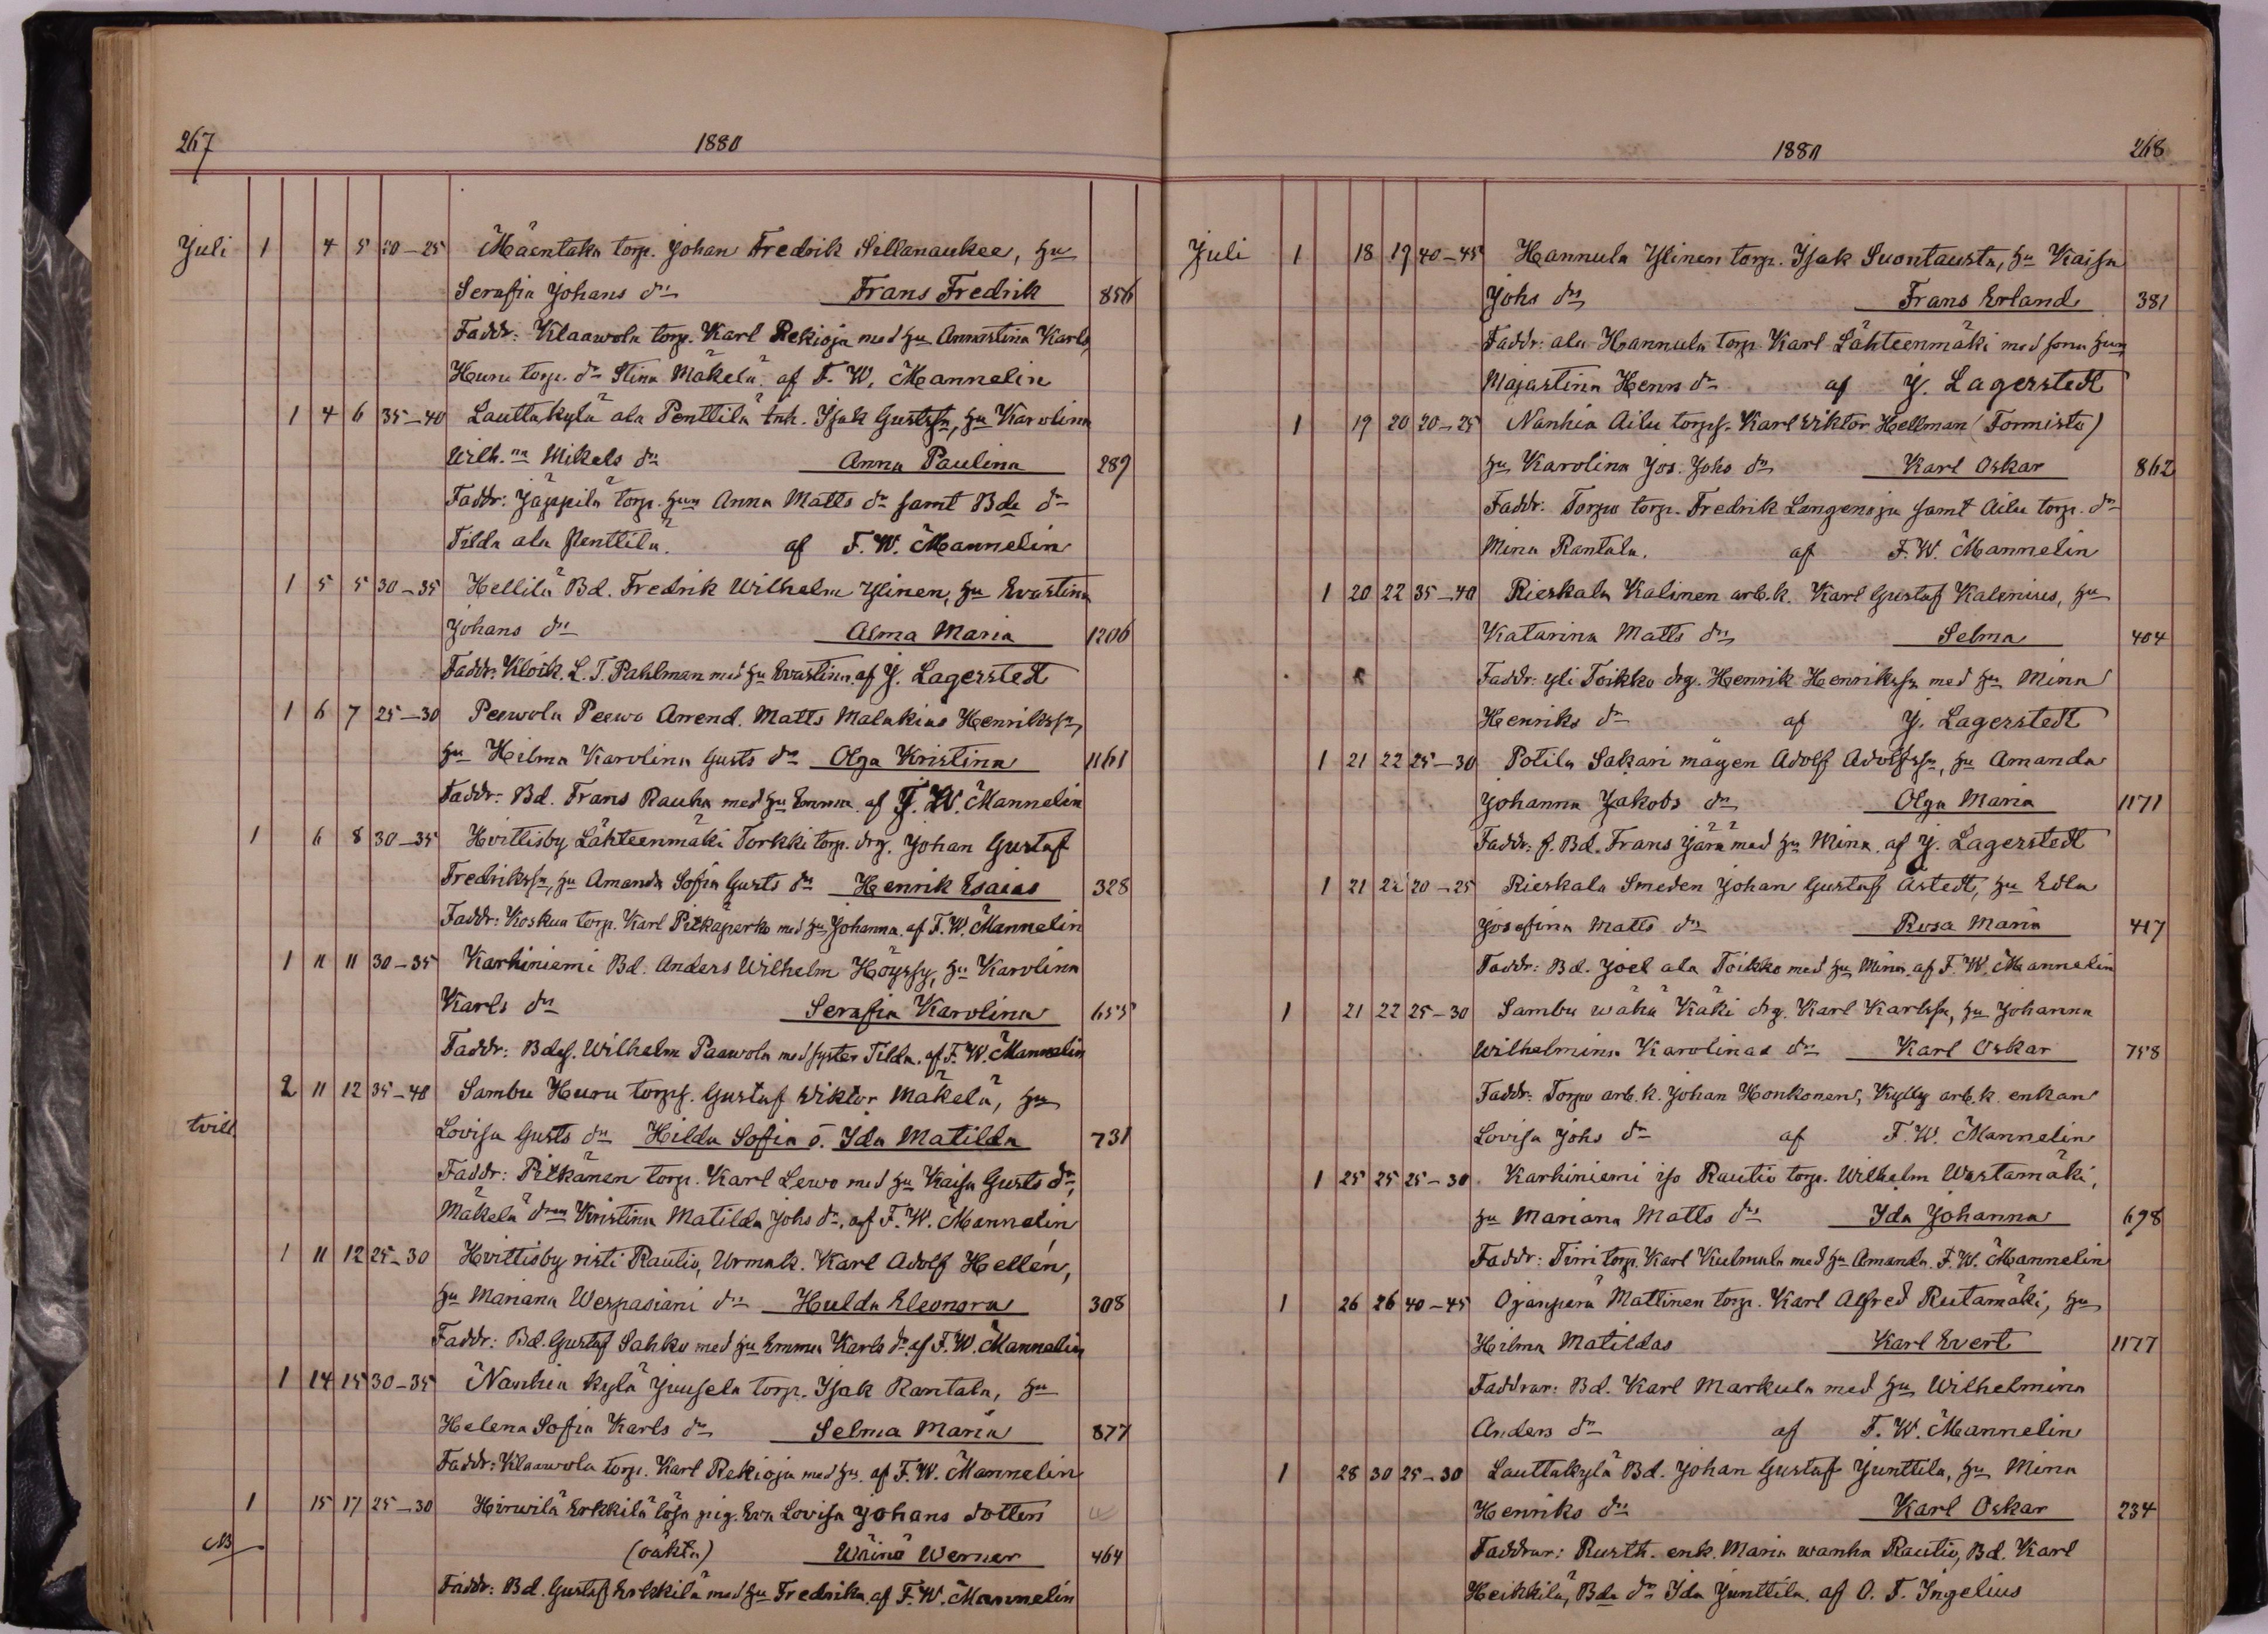 267 1880
Juli 1 4 5 20-25 Mäentaka torp. Johan Fredrik Sillanaukee, hu
Serafia Johans dr Frans Fredrik 856
Faddr: Klaawola torp. Karl Rekioja med hu Annastina Karls,
Huru torp. dr Stina Mäkelä. af F. W. Mannelin
1 4 6 35-40 Lauttakylä ala Penttilä inh. Isak Gustfsn, hu Karolina
Wilh.na Mikels dr Anna Paulina 289
Faddr: Jäppilä torp. hun Anna Matts dr samt Bde dr
Tilda ala Penttilä. af F. W. Mannelin
1 5 5 30-35 Hellilä Bd. Fredrik Wilhelm Ylinen, hu Evastina
Johans dr Alma Maria 1206
Faddr: Klock. L. T. Pahlman med hu Evastina. af J. Lagerstedt
1 6 7 25-30 Peewola Peewo Arrend. Matts Malakias Henrikssn,
hu Hilma Karolina Gusts dr Olga Kristina 1161
Faddr: Bd. Frans Rauha med hu Emma. af F. W. Mannelin
1 6 8 30-35 Hvittisby Lähteenmäki Torkki torp. drg. Johan Gustaf
Fredrikssn, hu Amanda Sofia Gusts dr Henrik Esaias 328
Faddr: Koskua torp. Karl Pitkäperko med hu Johanna. af F. W. Mannelin
1 11 11 30-35 Karhiniemi Bd. Anders Wilhelm Höyssy, hu Karolina
Karls dr Serafia Karolina 655
Faddr: Bdes. Wilhelm Paawola med syster Tilda. af F. W. Mannelin
2 11 12 35-40 Sambu Huru torps. Gustaf Wiktor Mäkelä, hu
tvill Lovisa Gusts dr Hilda Sofia o. Ida Matilda 731
Faddr: Pitkänen torp. Karl Lewo med hu Kaisa Gusts dr,
Mäkelä dren Kristina Matilda Johs dr. af F. W. Mannelin
1 11 12 25-30 Hvittisby risti Rautio, Urmak. Karl Adolf Hellén,
hu Mariana Wespasiani dr Hulda Eleonora 308
Faddr: Bd. Gustaf Sahko med hu Emma Karls dr. af F. W. Mannelin
1 14 15 30-35 Nanhia kylä Juusela torp. Isak Rantala, hu
Helena Sofia Karls dr Selma Maria 877
Faddr: Klaawola torp. Karl Rekioja med hu. af F. W. Mannelin
1 15 17 25-30 Hirwilä Erkkilä lösa pig. Eva Lovisa Johans dotter
NB (oäkta) Wäinö Werner 464
Faddr: Bd. Gustaf Erkkilä med hu Fredrika. af F. W. Mannelin
1880 268
Juli 1 18 19 40-45 Hannula Ylinen torp. Isak Suontausta, hu Kaisa
Johs dr Frans Erland 381
Faddr: ala Hannula torp. Karl Lähteenmäki med sona hun
Majastina Henn dr af J. Lagerstedt
1 19 20 20-25 Nanhia Ailu torps. Karl Wiktor Hellman (Tormistu)
hu Karolina Jos. Johs dr Karl Oskar 862
Faddr: Torpo torp. Fredrik Langenoja samt Ailu torp. dr
Mina Rantala. af F. W. Mannelin
1 20 22 35-40 Rieskala Kalinen arb.k. Karl Gustaf Kalenius, hu
Katarina Matts dr Selma 404
Faddr: yli Toikko drg. Henrik Henrikssn med hu Mina
Henriks dr af J. Lagerstedt
1 21 22 25-30 Potila Sakari mågen Adolf Adolfssn, hu Amanda
Johanna Jakobs dr Olga Maria 1171
Faddr: f. Bd. Frans Järä med hu Mina. af J. Lagerstedt
1 21 22 20-25 Rieskala Smeden Johan Gustaf Åstedt, hu Edla
Josefina Matts dr Rosa Maria 417
Faddr: Bd. Joel ala Toikko med hu Mina. af F. W. Mannelin
1 21 22 25-30 Sambu wähä Käki drg. Karl Karlssn, hu Johanna
Wilhelmina Karolinas dr Karl Oskar 758
Faddr: Torpo arb. k. Johan Honkonen, Kylly arb. k. enkan
Lovisa Johs dr af F. W. Mannelin
1 25 25 25-30 Karhiniemi iso Rautio torp. Wilhelm Westamäki,
hu Mariana Matts dr Ida Johanna 698
Faddr: Tirri torp. Karl Kulmala med hu Amanda. F. W. Mannelin
1 26 26 40-45 Ojanperä Mattinen torp. Karl Alfred Rutamäki, hu
Hilma Matildas Karl Evert 1177
Faddrar: Bd. Karl Markula med hu Wilhelmina
Anders dr af F. W. Mannelin
1 28 30 25-30 Lauttakylä Bd. Johan Gustaf Junttila, hu Mina
Henriks dr Karl Oskar 234
Faddrar: Rusth. enk. Maria wanha Rautio, Bd. Karl
Heikkilä, Bde dr Ida Junttila. af O. F. Ingelius